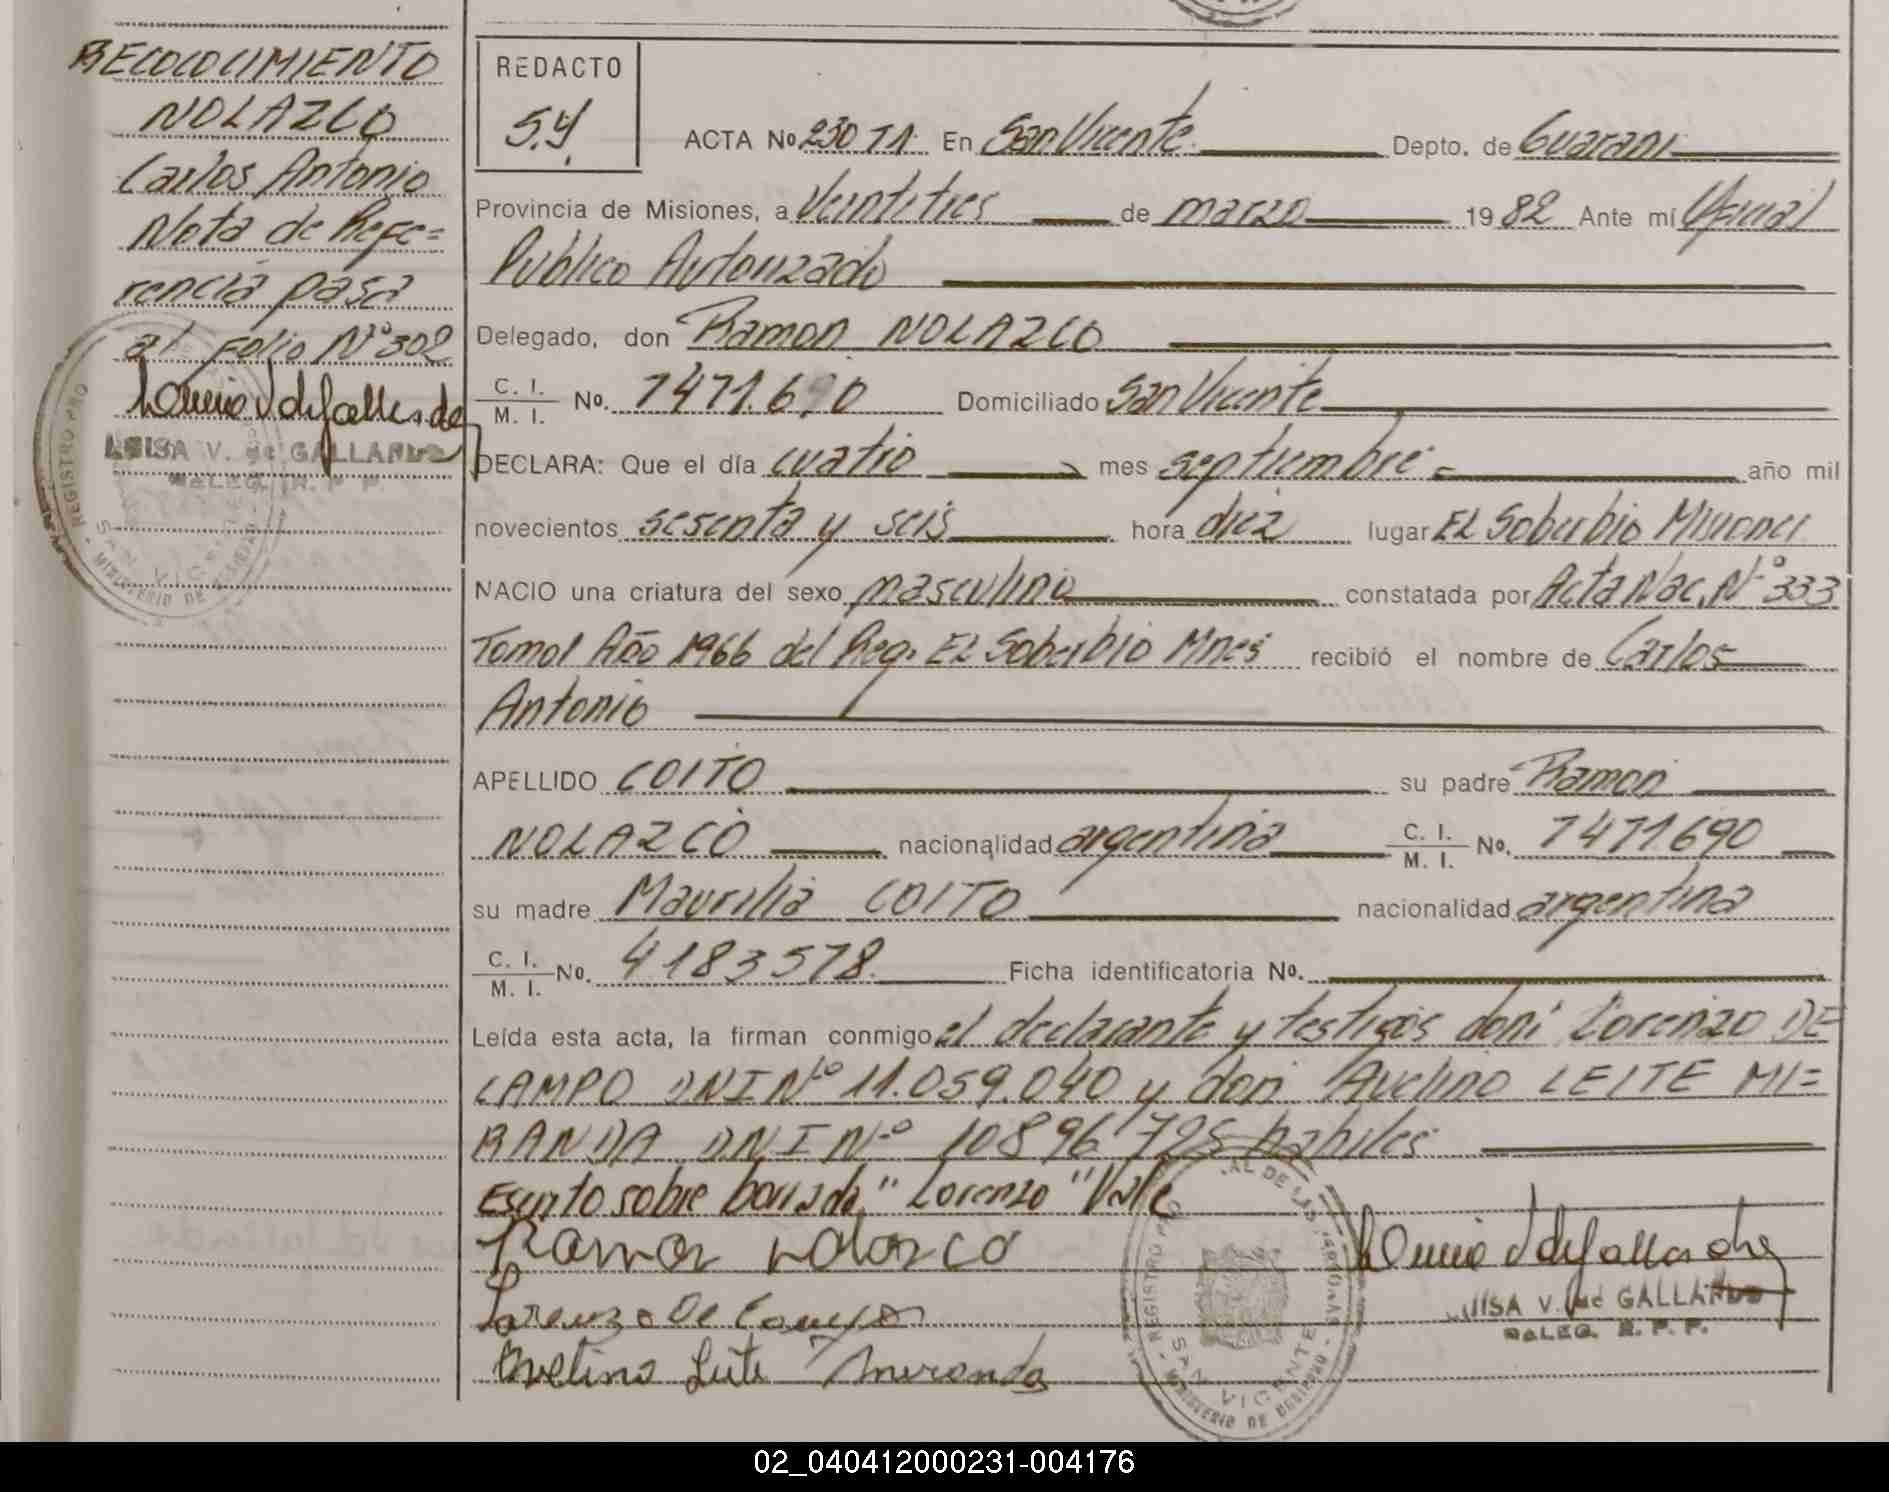 RECOCOCIMIENTO
NOLAZCO
Carlos Antonio
Nota de Refe=
rencia pasa
al Folio Nº 302
LUISA V. de GALLARDO
DELEG. R. P. P.
REGISTRO PRO
SAN VICENTE
MINISTERIO DE GOBIERNO
REDACTO
S.Y.
ACTA Nº 230 T1 En San Vicente Depto. de Guarani
Provincia de Misiones, a Veintitres de marzo 1982 Ante mí Oficial
Público Autorizado
Delegado, don Ramon NOLAZCO
C. I. / M. I. Nº. 7471.690 Domiciliado San Vicente
DECLARA: Que el día cuatro mes septiembre = año mil
novecientos sesenta y seis hora diez lugar EL Soberbio Misiones
NACIO una criatura del sexo masculino constatada por Acta Nac. Nº 333
TomoI Año 1966 del Reg. EL Soberbio Mnes recibió el nombre de Carlos
Antonio
APELLIDO COITO su padre Ramon
NOLAZCO nacionalidad argentina C. I. / M. I. Nº. 7471690
su madre Maurilia COITO nacionalidad argentina
C. I. / M. I. Nº. 4183578. Ficha identificatoria Nº.
Leída esta acta, la firman conmigo el declarante y testigos don: Lorenzo DE
CAMPO DNI Nº 11.059.040 y don Avelino LEITE MI=
RANDA DNI Nº 10896725 habiles
Escrito sobre borrado "Lorenzo" Vale
Ramon Nolasco
Lorenzo De Campo
Avelino Leite Miranda
LUISA V. de GALLARDO
DELEG. R. P. P.
REGISTRO PRO
AL DE LAS PERSONAS
SAN VICENTE
MINISTERIO DE GOBIERNO
02_040412000231-004176